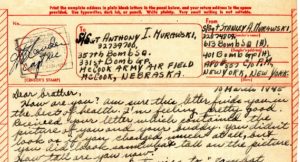 Print the complete address in plain block letters in the panel below, and your return address in the space
provided. Use typewriter, dark ink, or pencil. Write plainly. Very small writing is not suitable.
To
From
Sgt ANTHONY I. MURAWSKI,
32739706,
BOMB SQ.
331st BOMB GP
McCOOK ARMY AIR FIELD
McCOOK, NEBRASKA.
Sgt STANLEY A MURAWSKI
613 BOMB SQ (H),
401 BOMB GP (H),
NEW YORK, NEW YORK.
CENSOR'S STAMP
19 March 1945
Dear brother,
How are you? Am sure this letter finds you in
the best of health. I am feeling pretty good.
Received your letter which contained the
picture of you and your buddy. You didn't
look as if you changed much at all, but
you did look somewhat tall on the picture.
How tall are you now?